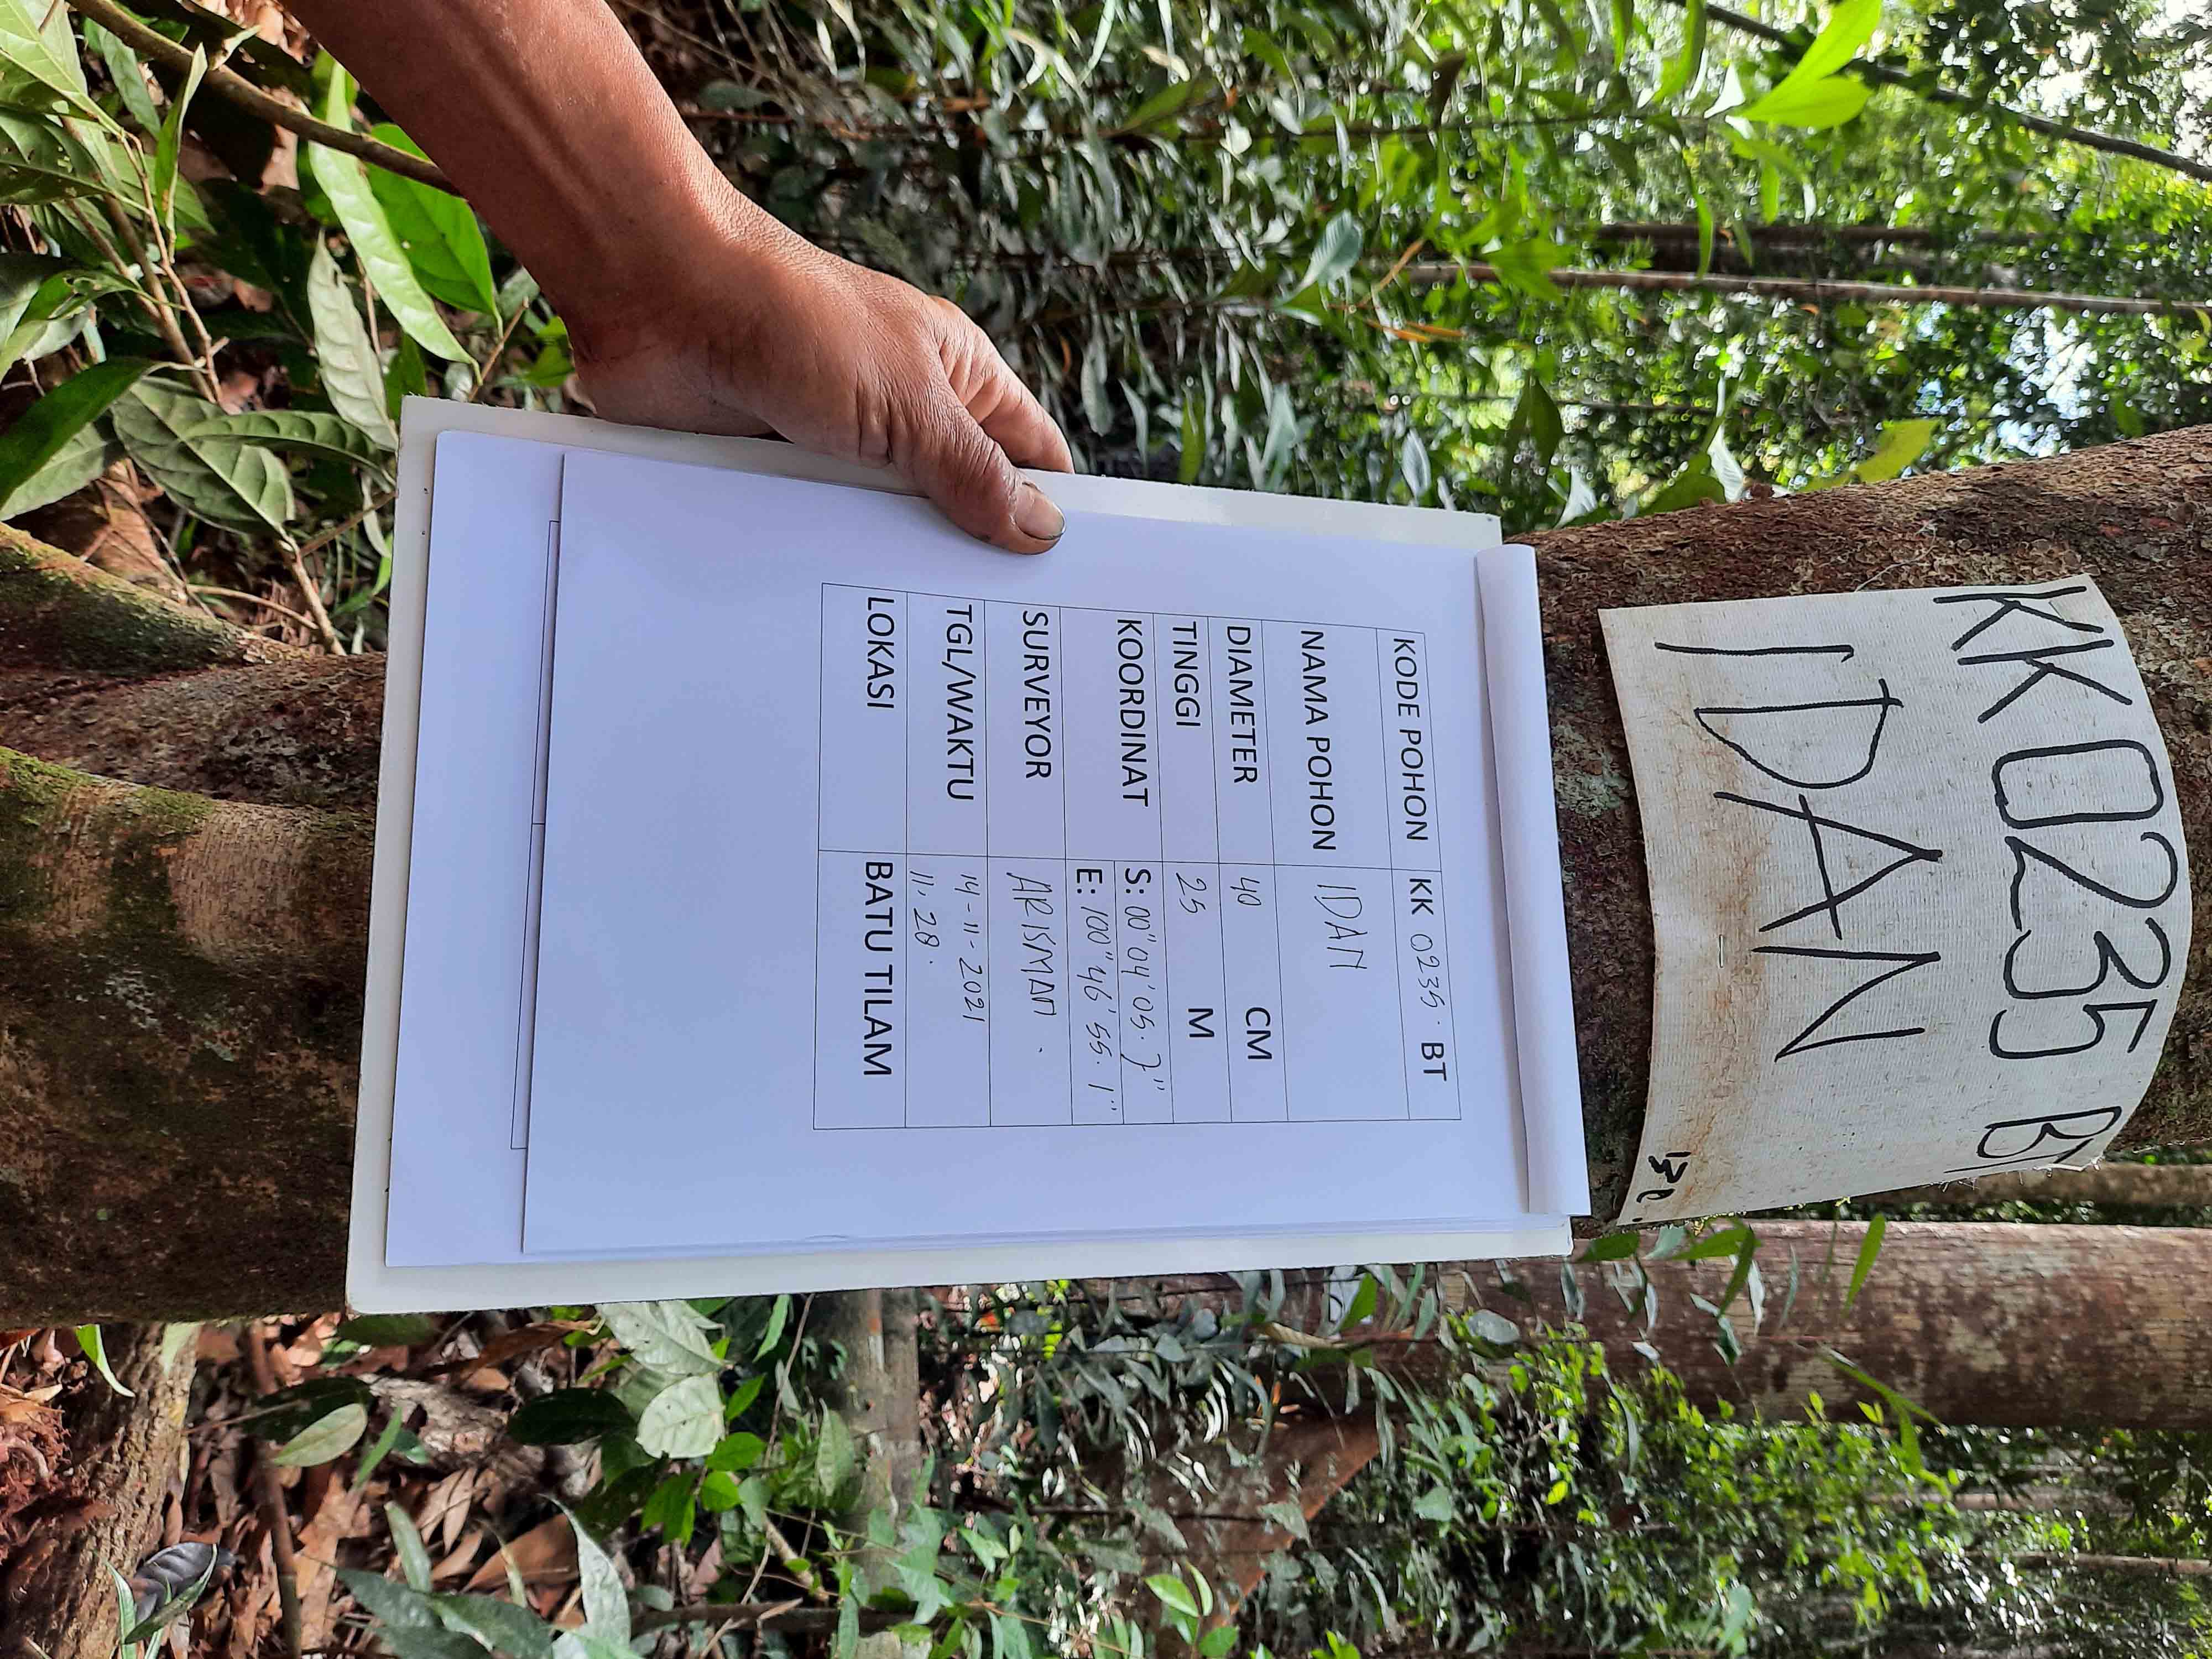 KK 0235 BT
IDAN
KODE POHON KK 0235. BT
NAMA POHON IDAN
DIAMETER 40 CM
TINGGI 25 M
KOORDINAT S: 00" 04' 05. 7"
E: 100" 46' 55. 1"
SURVEYOR ARISMAN .
TGL/WAKTU 14-11-2021
11. 28.
LOKASI BATU TILAM